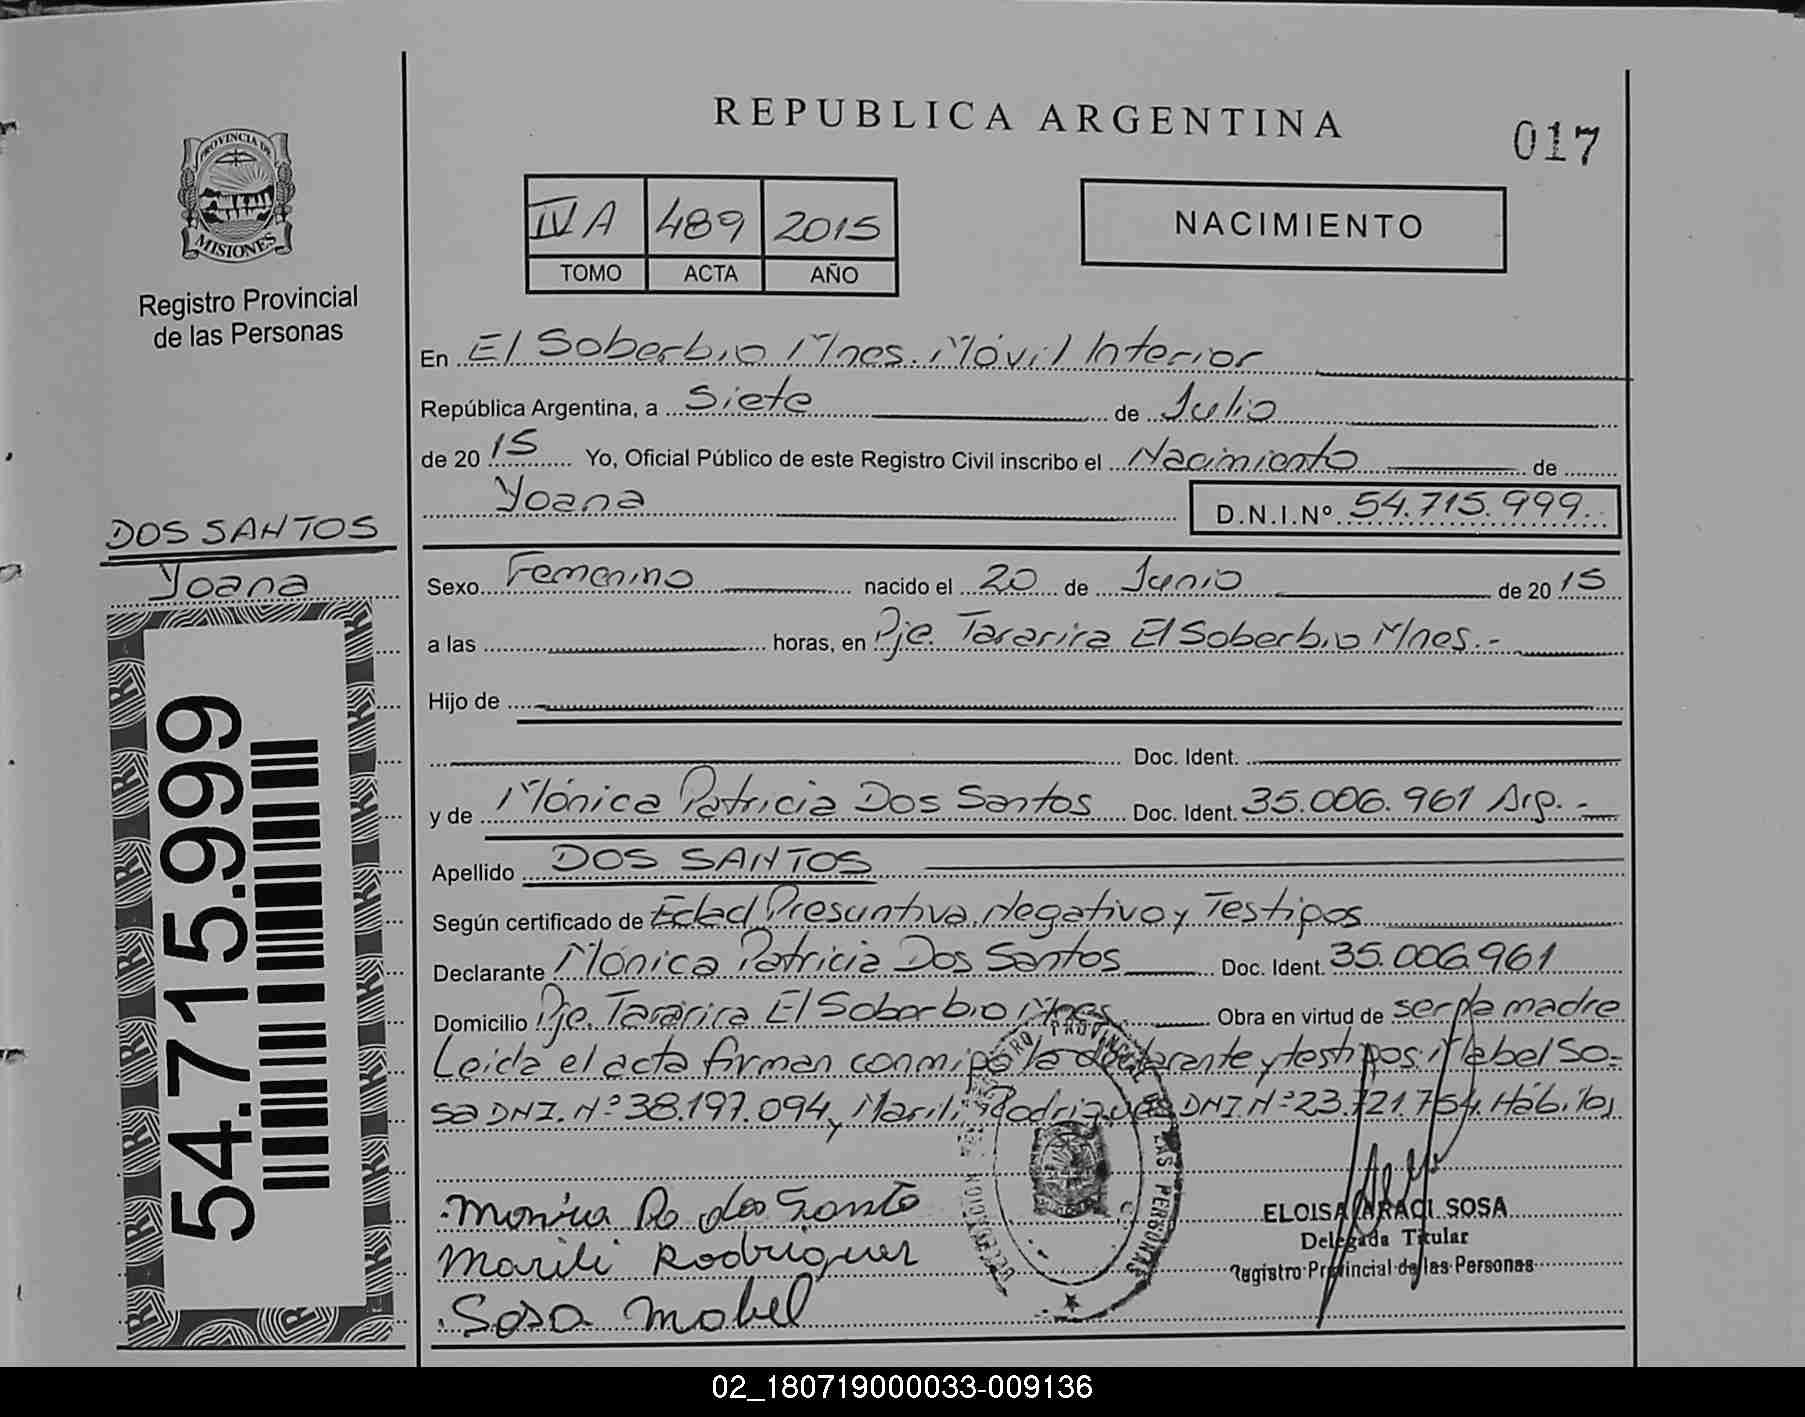 REPUBLICA ARGENTINA
017
PROVINCIA DE
MISIONES
Registro Provincial
de las Personas
IV A 489 2015
TOMO ACTA AÑO
NACIMIENTO
En El Soberbio Mnes. Móvil Interior
República Argentina, a Siete de Julio
de 20 15 Yo, Oficial Público de este Registro Civil inscribo el Nacimiento de
Yoana D.N.I.Nº 54.715.999.
DOS SANTOS
Yoana
54.715.999
Sexo Femenino nacido el 20 de Junio de 20 15
a las horas, en Pje. Tararira El Soberbio Mnes.-
Hijo de
Doc. Ident.
y de Mónica Patricia Dos Santos Doc. Ident. 35.006.961 Arg.-
Apellido DOS SANTOS
Según certificado de Edad Presuntiva, Negativo y Testigos
Declarante Mónica Patricia Dos Santos Doc. Ident. 35.006.961
Domicilio Pje. Tararira El Soberbio Mnes. Obra en virtud de ser la madre
Leida el acta firman conmigo la declarante y testigos: Mabel So=
sa DNI. Nº 38.197.094 y Marili Rodriguez DNI Nº 23.721.754. Hábiles
REGISTRO PROVINCIAL DE LAS PERSONAS
Monica Pa dos Santo
Marili Rodriguez
Sosa Mabel
ELOISA ARACI SOSA
Delegada Titular
Registro Provincial de las Personas
02_180719000033-009136